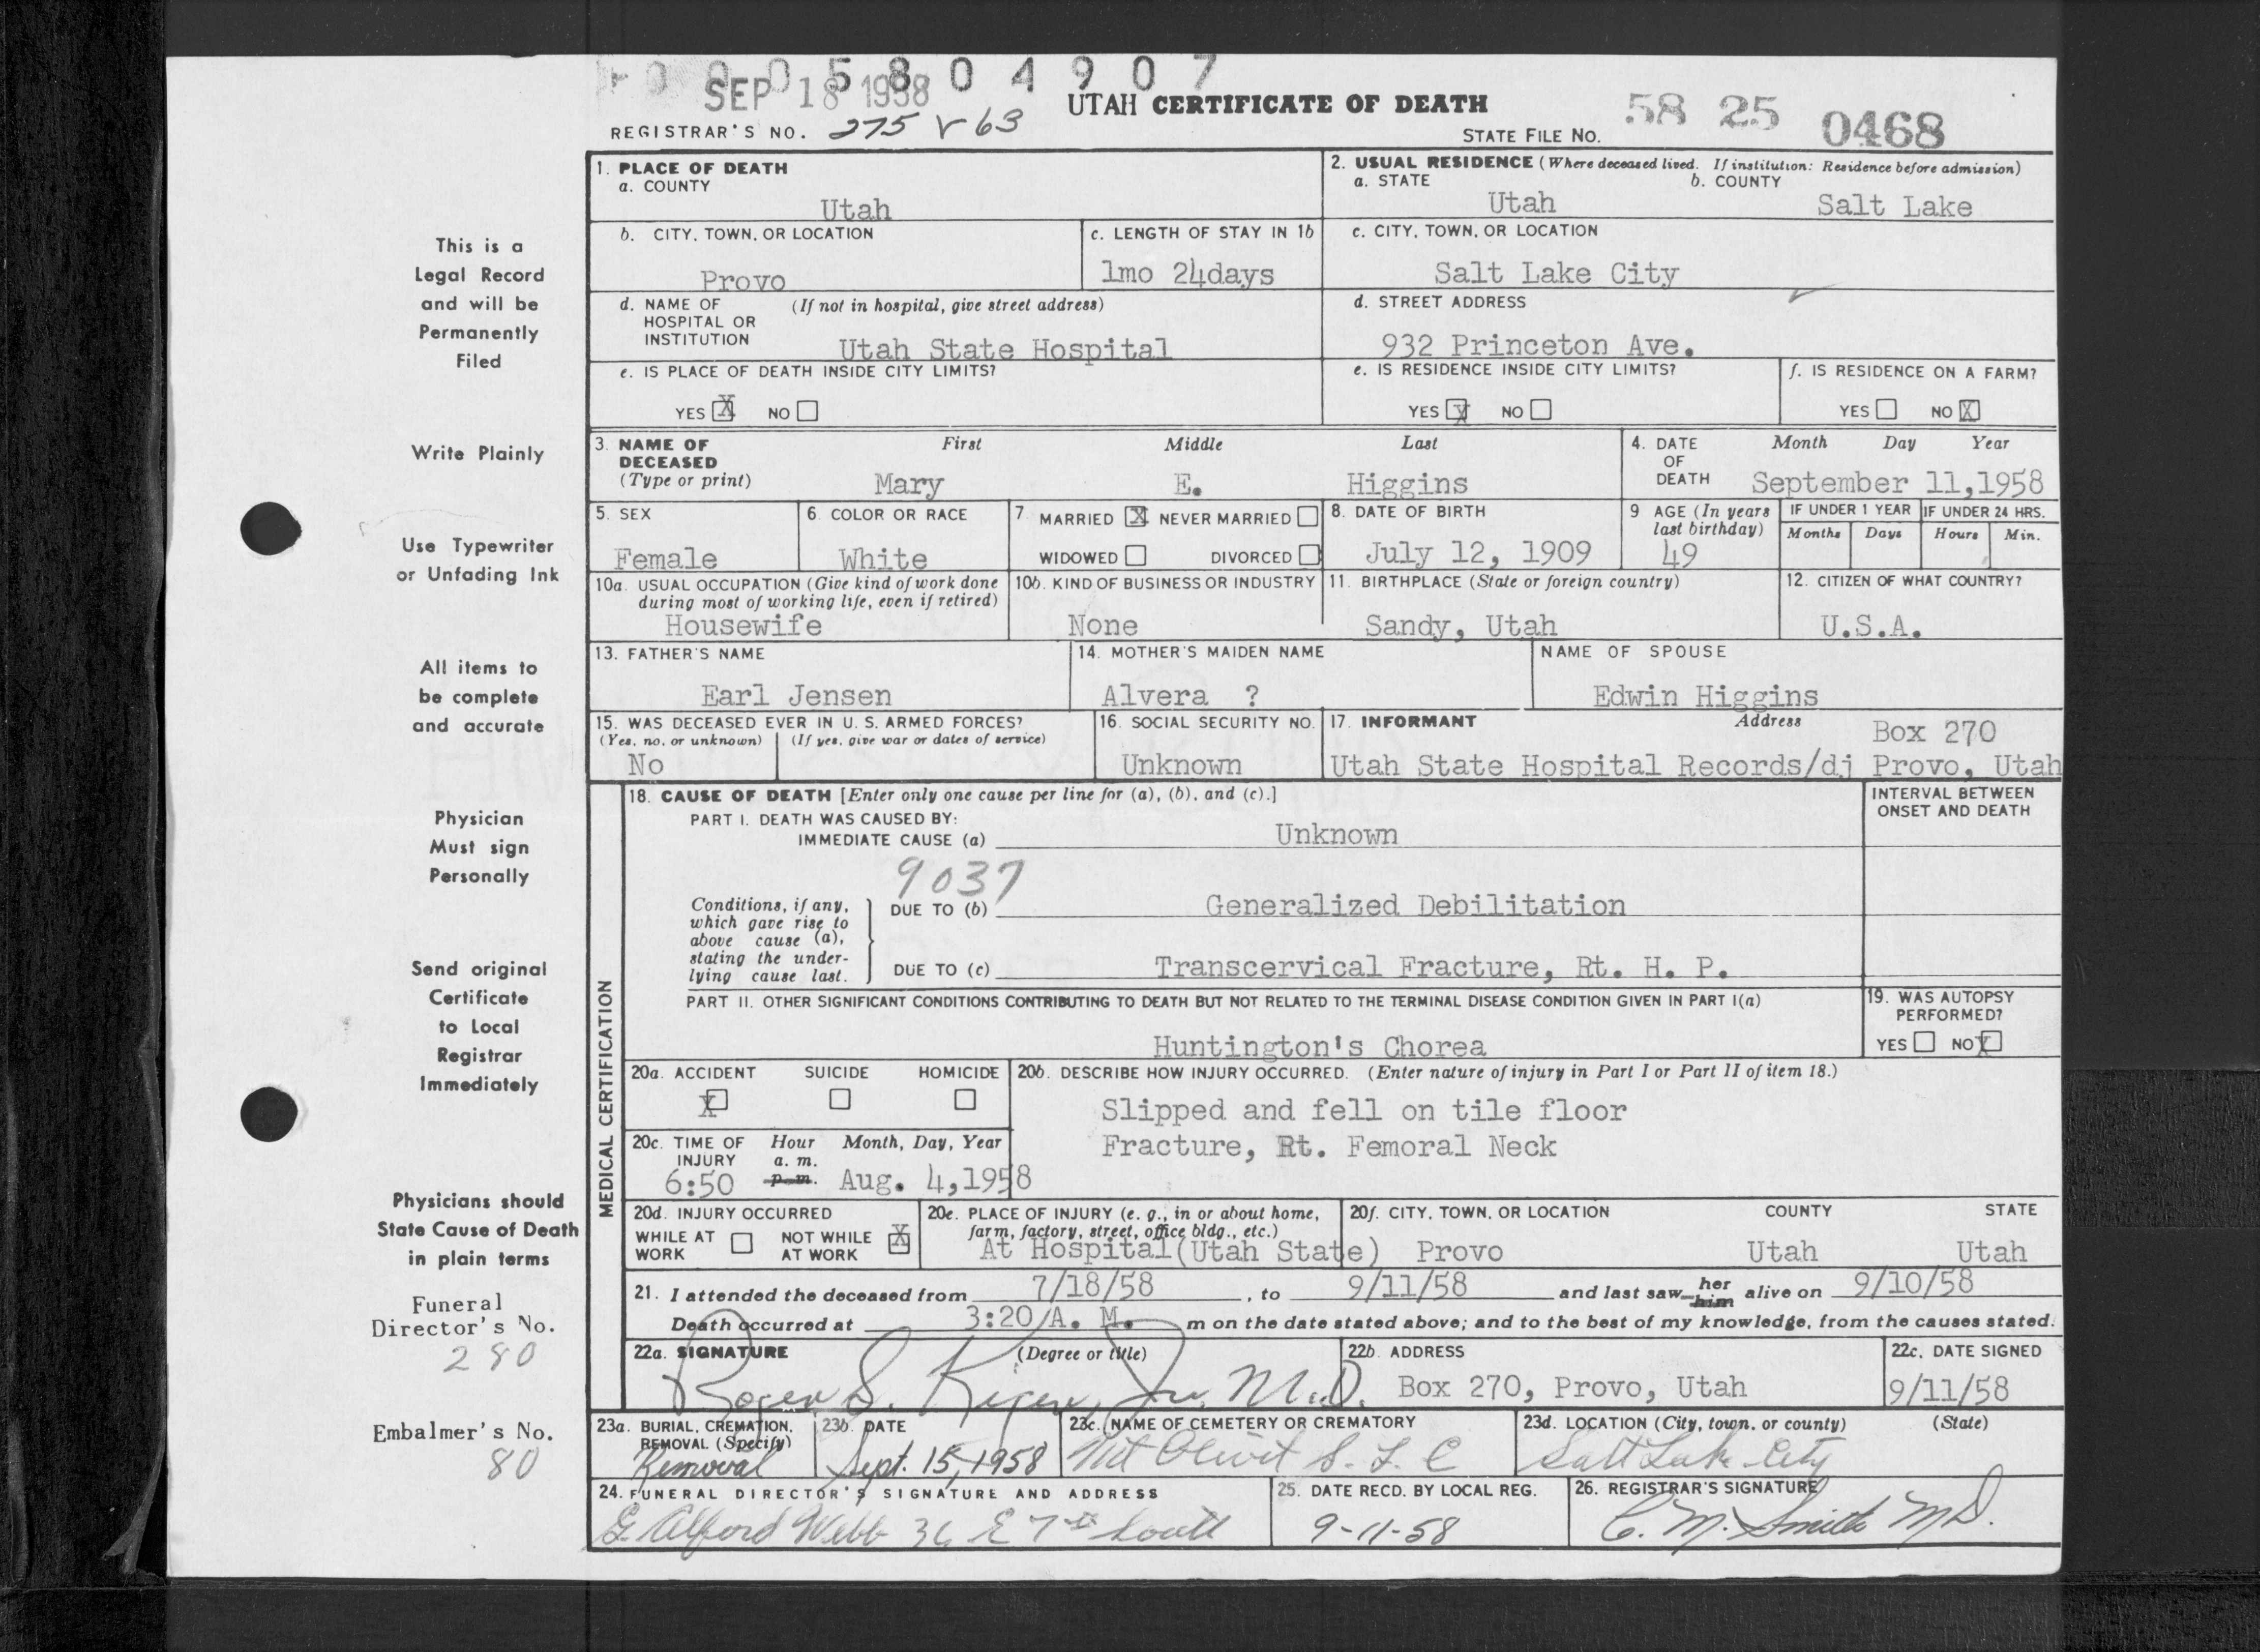 0 0 0 5 8 0 4 9 0 7
SEP 18 1958
UTAH CERTIFICATE OF DEATH
58 25 0468
REGISTRAR'S NO. 275 V 63
STATE FILE NO.
This is a
Legal Record
and will be
Permanently
Filed
Write Plainly
Use Typewriter
or Unfading Ink
All items to
be complete
and accurate
Physician
Must sign
Personally
Send original
Certificate
to Local
Registrar
Immediately
Physicians should
State Cause of Death
in plain terms
Funeral
Director's No.
280
Embalmer's No.
80
1. PLACE OF DEATH
a. COUNTY
Utah
2. USUAL RESIDENCE (Where deceased lived. If institution: Residence before admission)
a. STATE b. COUNTY
Utah Salt Lake
b. CITY, TOWN, OR LOCATION
Provo
c. LENGTH OF STAY IN 1b
1mo 24days
c. CITY, TOWN, OR LOCATION
Salt Lake City
d. NAME OF (If not in hospital, give street address)
HOSPITAL OR
INSTITUTION
Utah State Hospital
d. STREET ADDRESS
932 Princeton Ave.
e. IS PLACE OF DEATH INSIDE CITY LIMITS?
YES X NO
e. IS RESIDENCE INSIDE CITY LIMITS?
YES X NO
f. IS RESIDENCE ON A FARM?
YES NO X
3. NAME OF First Middle Last
DECEASED
(Type or print) Mary E. Higgins
4. DATE Month Day Year
OF
DEATH September 11,1958
5. SEX
Female
6. COLOR OR RACE
White
7. MARRIED X NEVER MARRIED
WIDOWED DIVORCED
8. DATE OF BIRTH
July 12, 1909
9 AGE (In years
last birthday)
49
IF UNDER 1 YEAR IF UNDER 24 HRS.
Months Days Hours Min.
10a. USUAL OCCUPATION (Give kind of work done
during most of working life, even if retired)
Housewife
10b. KIND OF BUSINESS OR INDUSTRY
None
11. BIRTHPLACE (State or foreign country)
Sandy, Utah
12. CITIZEN OF WHAT COUNTRY?
U.S.A.
13. FATHER'S NAME
Earl Jensen
14. MOTHER'S MAIDEN NAME
Alvera ?
NAME OF SPOUSE
Edwin Higgins
15. WAS DECEASED EVER IN U. S. ARMED FORCES?
(Yes, no, or unknown) (If yes, give war or dates of service)
No
16. SOCIAL SECURITY NO.
Unknown
17. INFORMANT Address
Box 270
Utah State Hospital Records/dj Provo, Utah
MEDICAL CERTIFICATION
18. CAUSE OF DEATH [Enter only one cause per line for (a), (b), and (c).]
INTERVAL BETWEEN
ONSET AND DEATH
PART I. DEATH WAS CAUSED BY:
IMMEDIATE CAUSE (a) Unknown
9037
Conditions, if any,
which gave rise to
above cause (a),
stating the under-
lying cause last.
DUE TO (b) Generalized Debilitation
DUE TO (c) Transcervical Fracture, Rt. H. P.
PART II. OTHER SIGNIFICANT CONDITIONS CONTRIBUTING TO DEATH BUT NOT RELATED TO THE TERMINAL DISEASE CONDITION GIVEN IN PART I(a)
Huntington's Chorea
19. WAS AUTOPSY
PERFORMED?
YES NO X
20a. ACCIDENT SUICIDE HOMICIDE
X
20b. DESCRIBE HOW INJURY OCCURRED. (Enter nature of injury in Part I or Part II of item 18.)
Slipped and fell on tile floor
Fracture, Rt. Femoral Neck
20c. TIME OF Hour Month, Day, Year
INJURY a. m.
6:50 p. m. Aug. 4,1958
20d. INJURY OCCURRED
WHILE AT NOT WHILE X
WORK AT WORK
20e. PLACE OF INJURY (e. g., in or about home,
farm, factory, street, office bldg., etc.)
At Hospital(Utah State)
20f. CITY, TOWN, OR LOCATION COUNTY STATE
Provo Utah Utah
21. I attended the deceased from 7/18/58, to 9/11/58 and last saw her him alive on 9/10/58
Death occurred at 3:20 A. M. m on the date stated above; and to the best of my knowledge, from the causes stated.
22a. SIGNATURE (Degree or title)
Roger S. Kiger, Jr. M.D.
22b. ADDRESS
Box 270, Provo, Utah
22c. DATE SIGNED
9/11/58
23a. BURIAL, CREMATION,
REMOVAL (Specify)
Removal
23b. DATE
Sept. 15, 1958
23c. NAME OF CEMETERY OR CREMATORY
Mt Olivet S. L. C
23d. LOCATION (City, town, or county) (State)
Salt Lake City
24. FUNERAL DIRECTOR'S SIGNATURE AND ADDRESS
G. Alford Webb 36 E 7th South
25. DATE RECD. BY LOCAL REG.
9-11-58
26. REGISTRAR'S SIGNATURE
C. M. Smith MD.